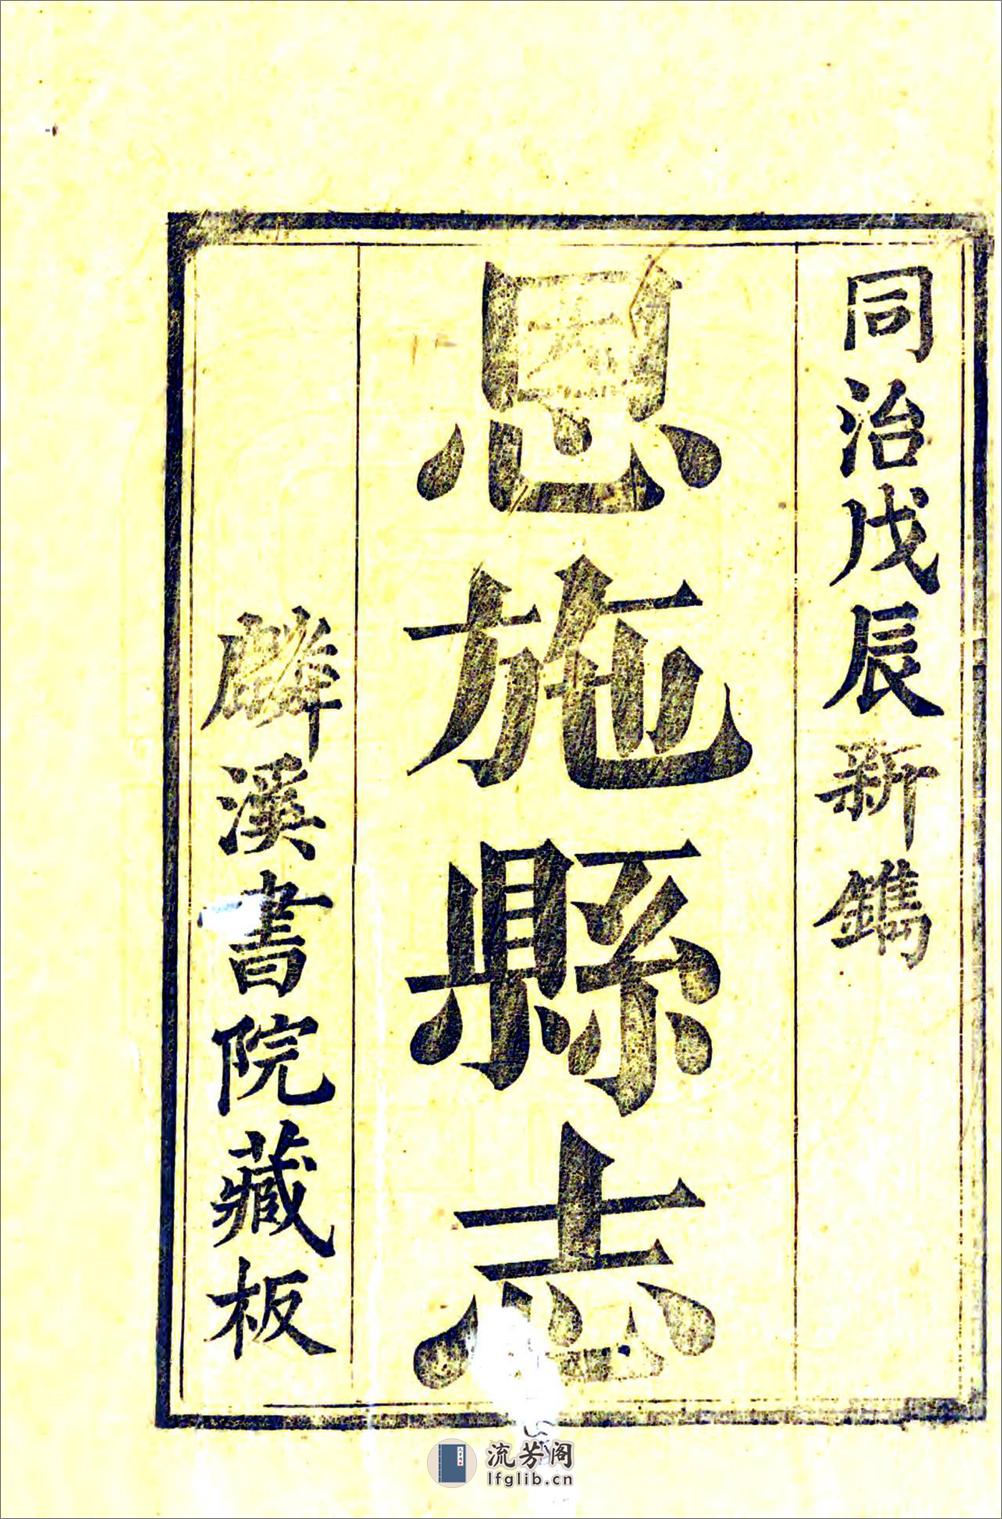 同治戊辰新鐫
恩施縣志
麟溪書院藏板
流芳阁
lfglib.cn